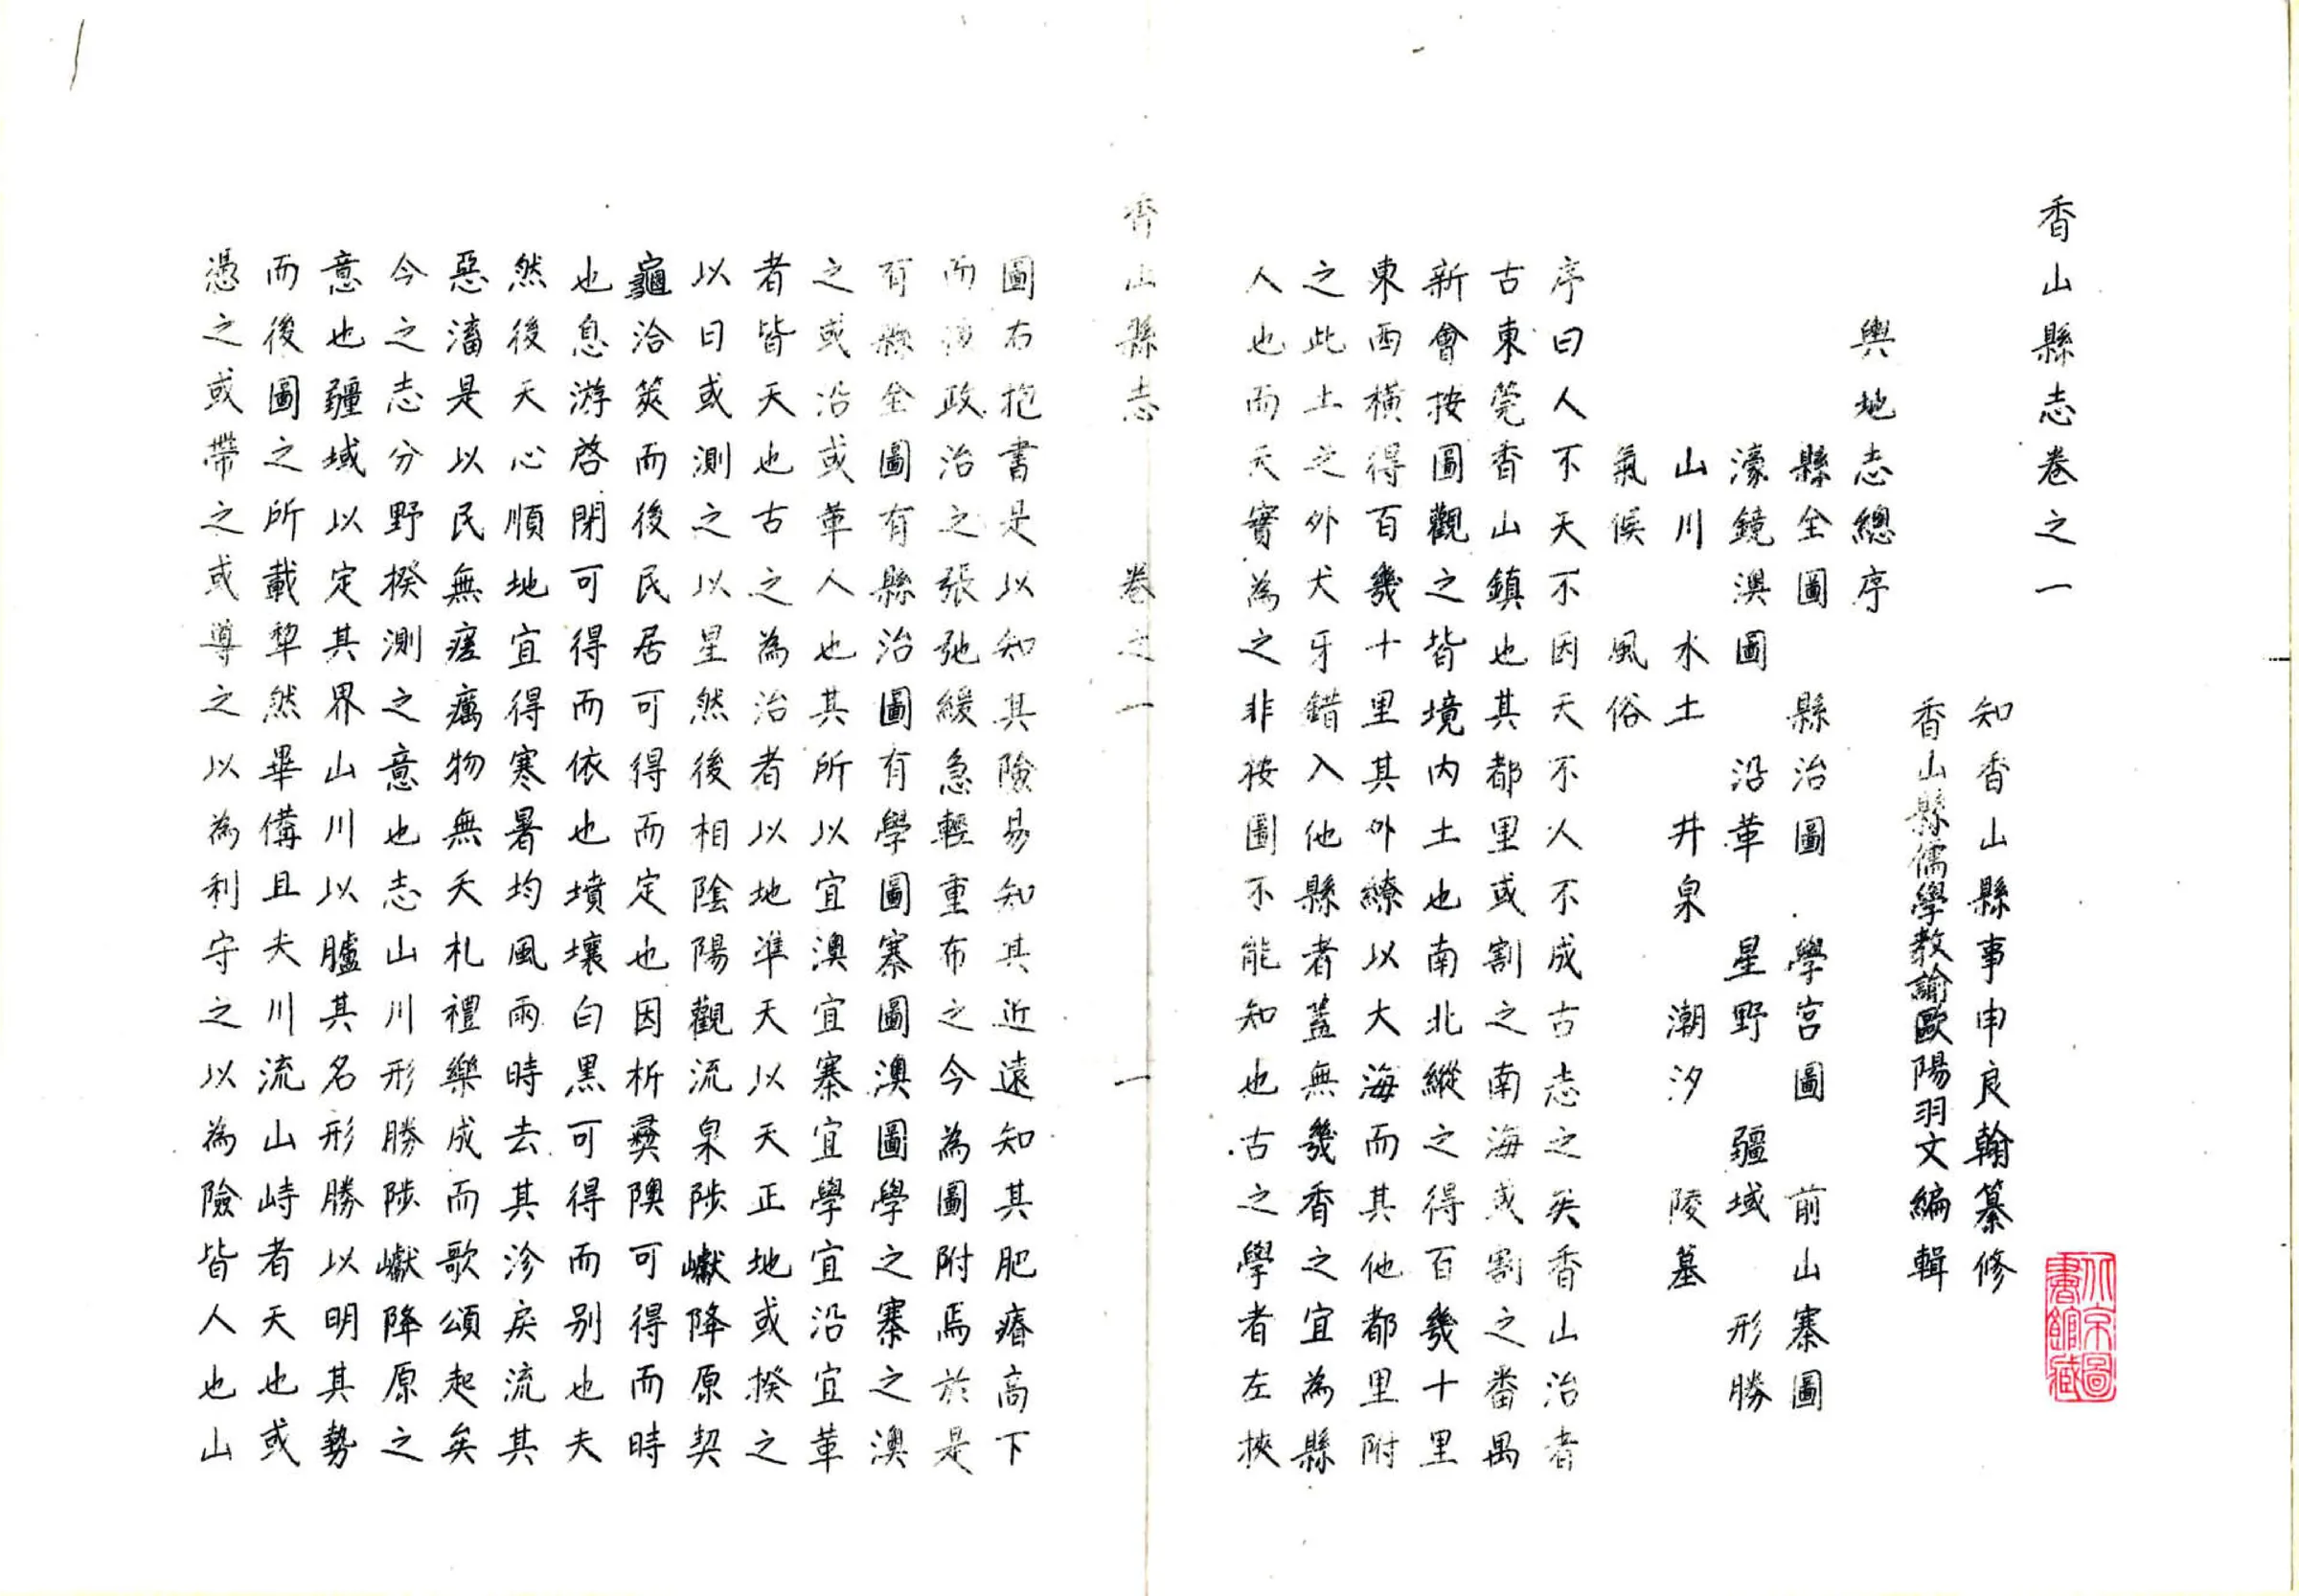 香山縣志卷之一
知香山縣事申良翰纂修
香山縣儒學教諭歐陽羽文編輯
輿地志總序
縣全圖 縣治圖 學宮圖 前山寨圖
濠鏡澳圖 沿革 星野 疆域 形勝
山川 水土 井泉 潮汐 陵墓
氣候 風俗
序曰人不天不因天不人不成古志之矣香山治者
古東莞香山鎮也其都里或割之南海或割之番禺
新會按圖觀之皆境內土也南北縱之得百幾十里
東西橫得百幾十里其外繚以大海而其他都里附
之此土之外犬牙錯入他縣者蓋無幾香之宜為縣
人也而天實為之非按圖不能知也古之學者左挾
香山縣志 卷之一 一
圖右抱書是以知其險易知其近遠知其肥瘠高下
而後政治之張弛緩急輕重布之今為圖附焉於是
有縣全圖有縣治圖有學圖寨圖澳圖學之寨之澳
之或沿或革人也其所以宜澳宜寨宜學宜沿宜革
者皆天也古之為治者以地準天以天正地或揆之
以日或測之以星然後相陰陽觀流泉陟巘降原契
龜洽筴而後民居可得而定也因析彛隩可得而時
也息游啓閉可得而依也墳壤白黑可得而别也夫
然後天心順地宜得寒暑均風雨時去其沴戾流其
惡瀋是以民無瘥癘物無夭札禮樂成而歌頌起矣
今之志分野揆測之意也志山川形勝陟巘降原之
意也疆域以定其界山川以臚其名形勝以明其勢
而後圖之所載犂然畢備且夫川流山峙者天也或
憑之或帶之或導之以為利守之以為險皆人也山
北京圖書館藏